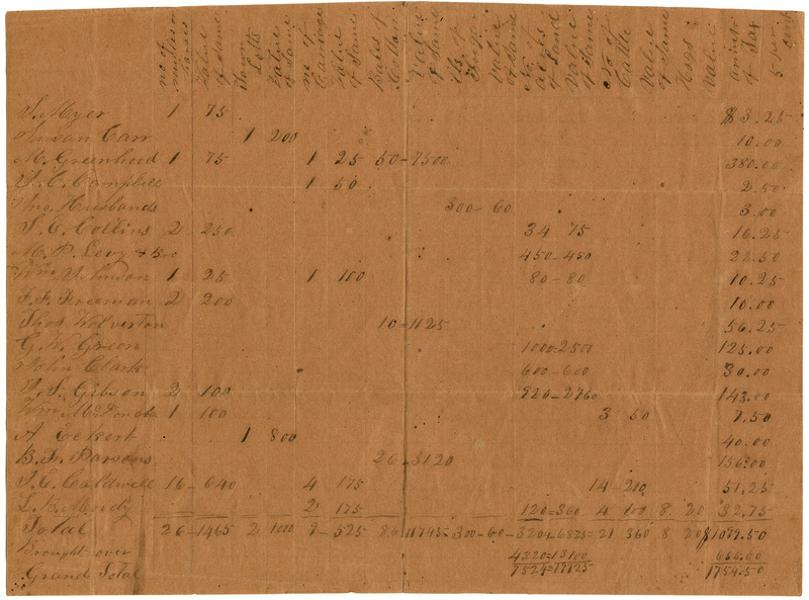 no of mules or horses Value of Same Town Lotts Value of Same no of Carriages Value of Same Bales of Cotton Value of Same lb of Value of Same No of acres of Land Value of Same No of Cattle Value of Same Hogs Value amnt of Tax 5 per cent
S. Meyer 1 75 $3.25
Susan Carr 1 200 10.00
M. Greenhood 1 75 1 25 50-7500 380.00
Campbell 1 50 2.50
Husbands 300-60 3.00
S. C. Collins 2 250 34 75 16.25
M. P. Levy & Bro 450-450 22.50
Wm Johnson 1 25 1 100 80-80 10.25
F. F. Freeman 2 200 10.00
Thos Wolverton 10-1125 56.25
G. N. Green 1000-2500 125.00
John Clark 600-600 30.00
S. Gibson 2 100 920-2760 143.00
Wm 1 100 3 50 7.50
A Eckert 1 800 40.00
B. F. Parsons 26-3120 156.00
J. C. Caldwell 16-640 4 175 14-210 51.25
L. B. Moody 2 175 120=360 4 100 8 20 32.75
Total 26-1465 2 1000 9-525 86 11745-300-60-3204-6825-21 360 8 20 $1099.50
Brought over 4320=13100 655.00
Grand Total 7524=19925 1754.50